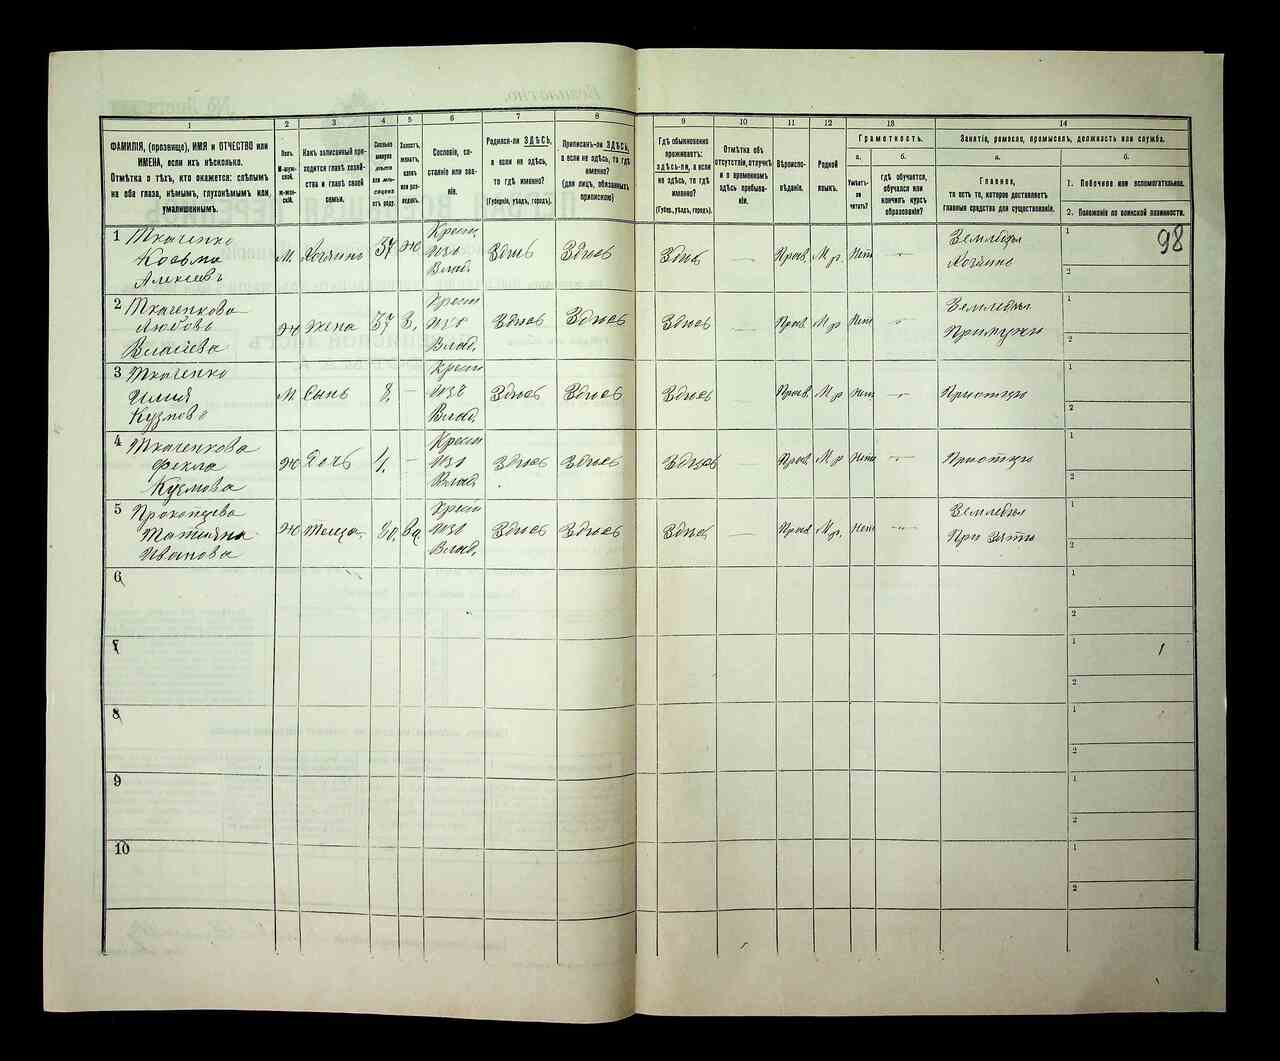 1
2
3
4
5
6
7
8
9
10
11
12
13
14
ФАМИЛІЯ, (прозвище), ИМЯ и ОТЧЕСТВО или
ИМЕНА, если ихъ нѣсколько.
Отмѣтка о тѣхъ, кто окажется: слѣпымъ
на оба глаза, нѣмымъ, глухонѣмымъ или
умалишеннымъ.
Полъ.
М-муж-
ской.
Ж-жен-
скій.
Какъ записанный при-
ходится главѣ хозяй-
ства и главѣ своей
семьи.
Сколько
минуло
лѣтъ
или мѣ-
сяцевъ
отъ роду.
Холостъ,
женатъ,
вдовъ
или раз-
веденъ.
Сословіе, со-
стояніе или зва-
ніе.
Родился-ли ЗДѢСЬ,
а если не здѣсь,
то гдѣ именно?
(Губернія, уѣздъ, городъ).
Приписанъ-ли ЗДѢСЬ,
а если не здѣсь, то гдѣ
именно?
(для лицъ, обязанныхъ
припискою)
Гдѣ обыкновенно
проживаетъ:
здѣсь-ли, а если
не здѣсь, то гдѣ
именно?
(Губер., уѣздъ, городъ).
Отмѣтка объ
отсутствіи, отлучкѣ
и о временномъ
здѣсь пребыва-
ніи.
Вѣроиспо-
вѣданіе.
Родной
языкъ.
Грамотность.
а.
б.
Умѣетъ-
ли
читать?
гдѣ обучается,
обучался или
кончилъ курсъ
образованія?
Занятіе, ремесло, промыселъ, должность или служба.
а.
б.
Главное,
то есть то, которое доставляетъ
главныя средства для существованія.
1. Побочное или вспомогательное.
2. Положеніе по воинской повинности.
98
1 Ткаченко
Козьма
Алексеевъ
М Хозяинъ 37 Ж
Крест
изъ
Влад.
Здѣсь Здѣсь Здѣсь — Прав. М.р. Нет —
Земледѣл
Хозяинъ
1
2
2 Ткаченкова
Любовь
Власиева
Ж Жена 37 З.
Крест
изъ
Влад.
Здѣсь Здѣсь Здѣсь — Прав. М.р. Нет —
Земледѣл
При мужѣ
1
2
3 Ткаченко
Илия
Кузмовъ
М Сынъ 8. —
Крест
изъ
Влад.
Здѣсь Здѣсь Здѣсь — Прав. М р Нет —
При отцѣ
1
2
4 Ткаченкова
Фекла
Кузмова
Ж Дочь 4. —
Крест
изъ
Влад.
Здѣсь Здѣсь Здѣсь — Прав. М р Нет —
При отцѣ
1
2
5 Прокопцева
Татияна
Иванова
Ж Теща Вд.
Крест
изъ
Влад.
Здѣсь Здѣсь Здѣсь — Прав М.р. Нет —
Земледѣл
При зятѣ
1
2
6
1
2
7
1
2
8
1
2
9
1
2
10
1
2